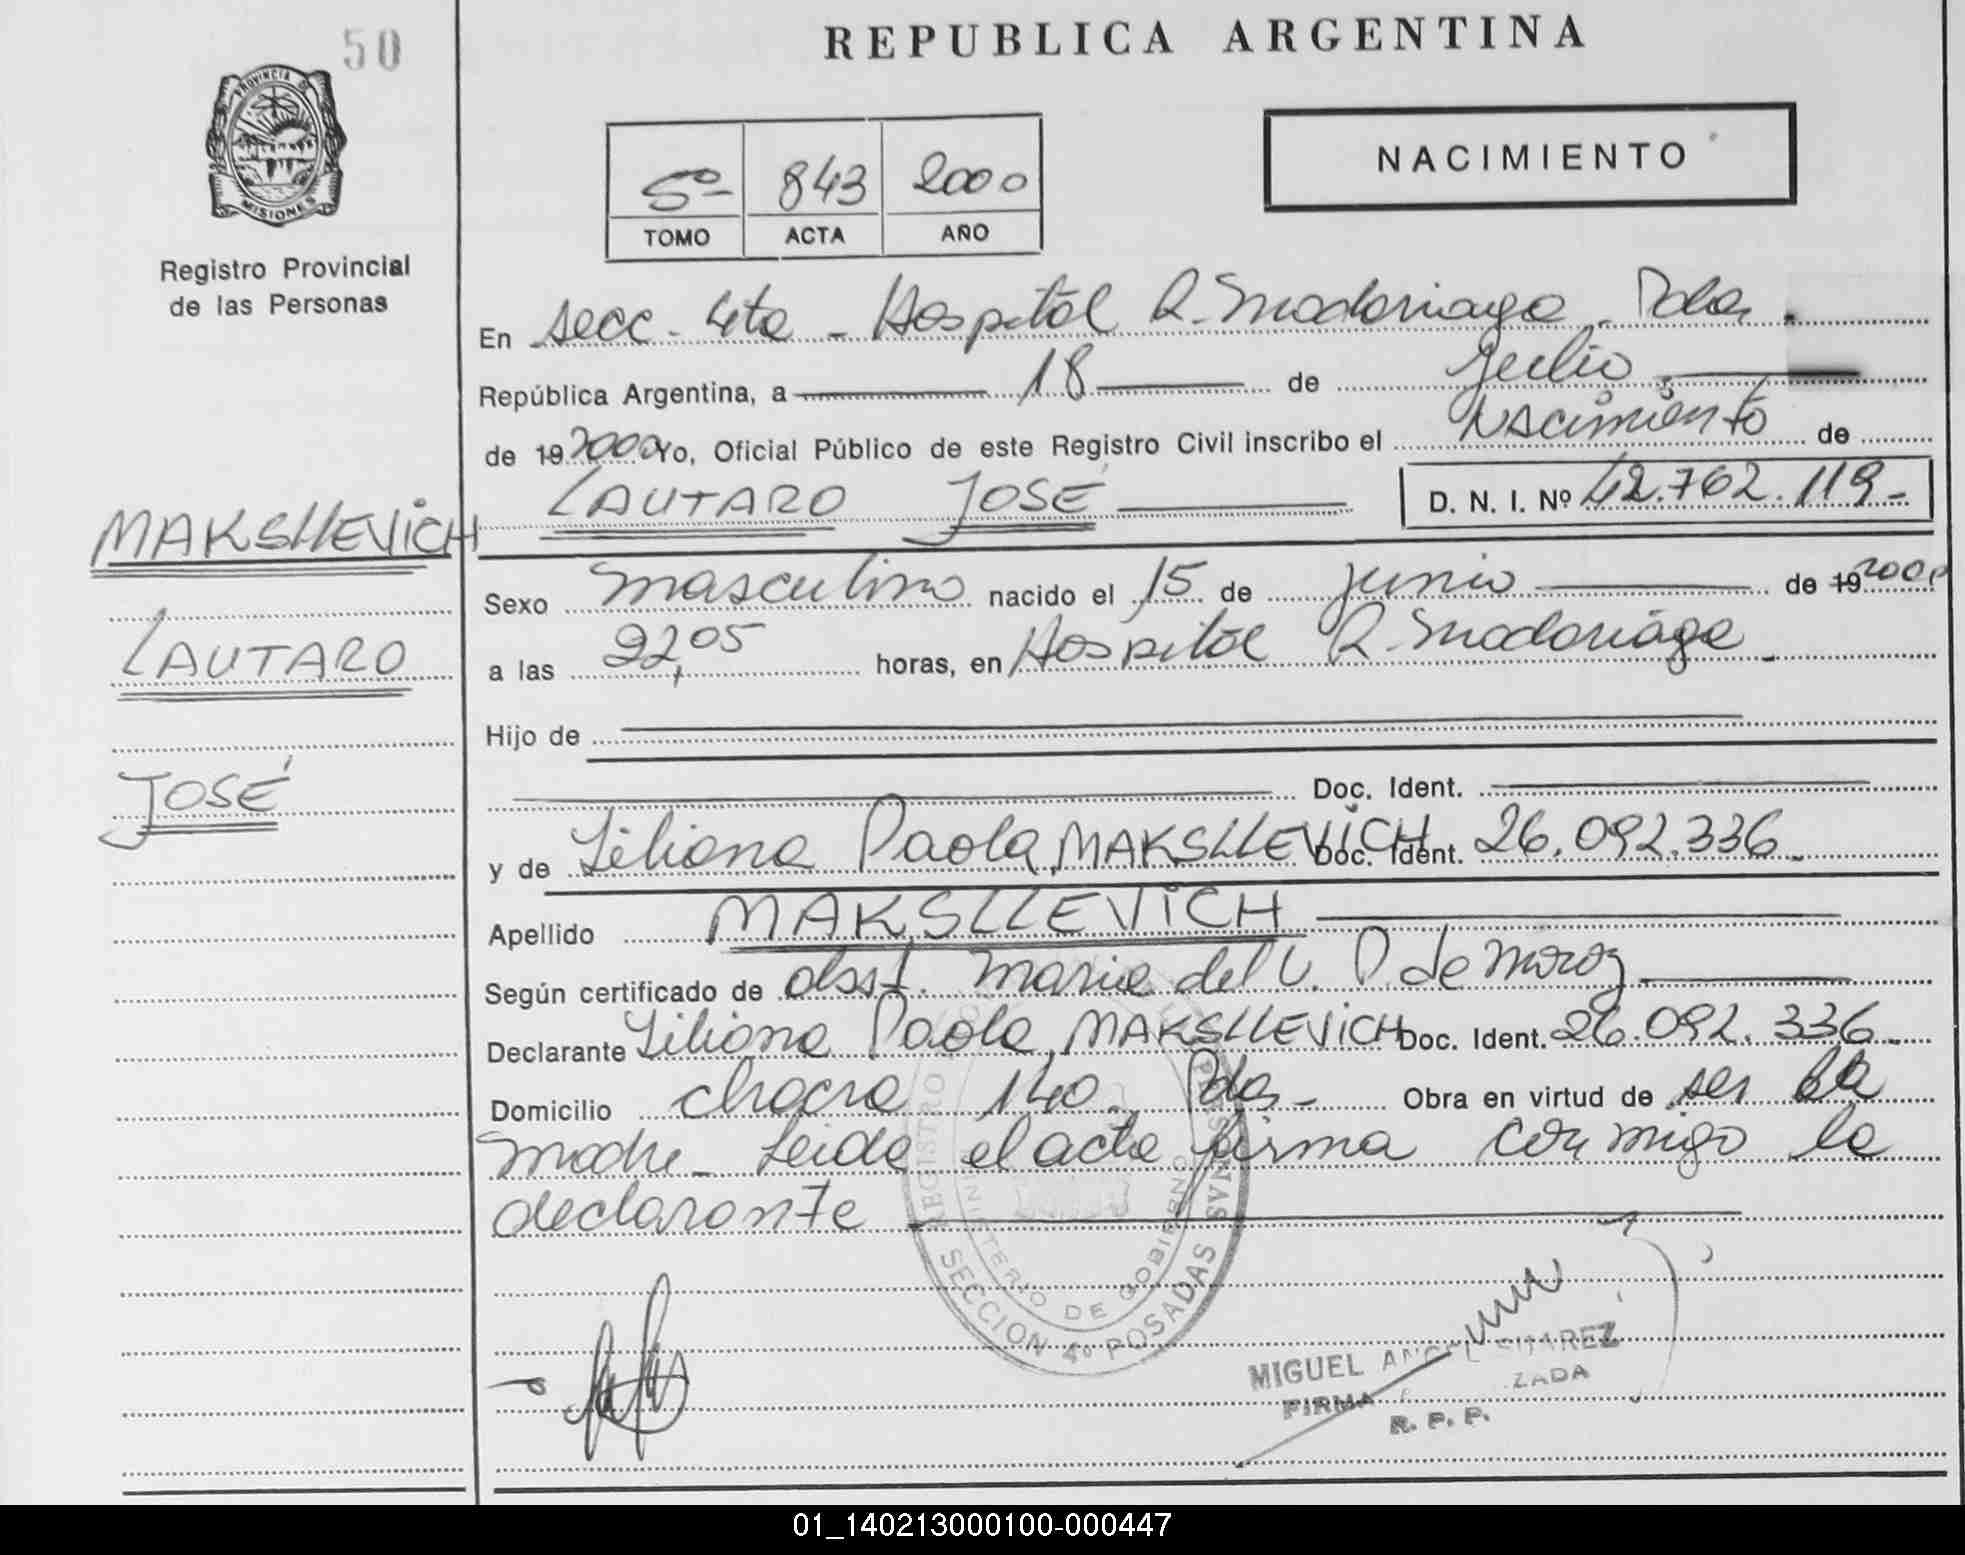 50
REPUBLICA ARGENTINA
PROVINCIA DE
MISIONES
Registro Provincial
de las Personas
5º 843 2000
TOMO ACTA AÑO
NACIMIENTO
En secc. 4ta - Hospital R. Madariaga. Pdas.
República Argentina, a 18 de Julio
de 19 2000 Yo, Oficial Público de este Registro Civil inscribo el Nacimiento de
LAUTARO JOSÉ D. N. I. Nº 42.762.119-
MAKSLLEVICH
LAUTARO
JOSÉ
Sexo masculino nacido el 15 de junio de 19 2000
a las 22,05 horas, en Hospital R. Madariaga
Hijo de
Doc. Ident.
y de Liliana Paola MAKSLLEVICH Doc. Ident. 26.092.336
Apellido MAKSLLEVICH
Según certificado de obst. Maria del C. P. de
Declarante Liliana Paola MAKSLLEVICH Doc. Ident. 26.092.336
Domicilio chacra 140 Pdas- Obra en virtud de ser la
madre - Leida el acta firma conmigo la
declarante
REGISTRO PERSONAS
MINISTERIO DE GOBIERNO
SECCION 4º POSADAS
MIGUEL ANGEL SUAREZ
FIRMA
R. P. P.
01_140213000100-000447